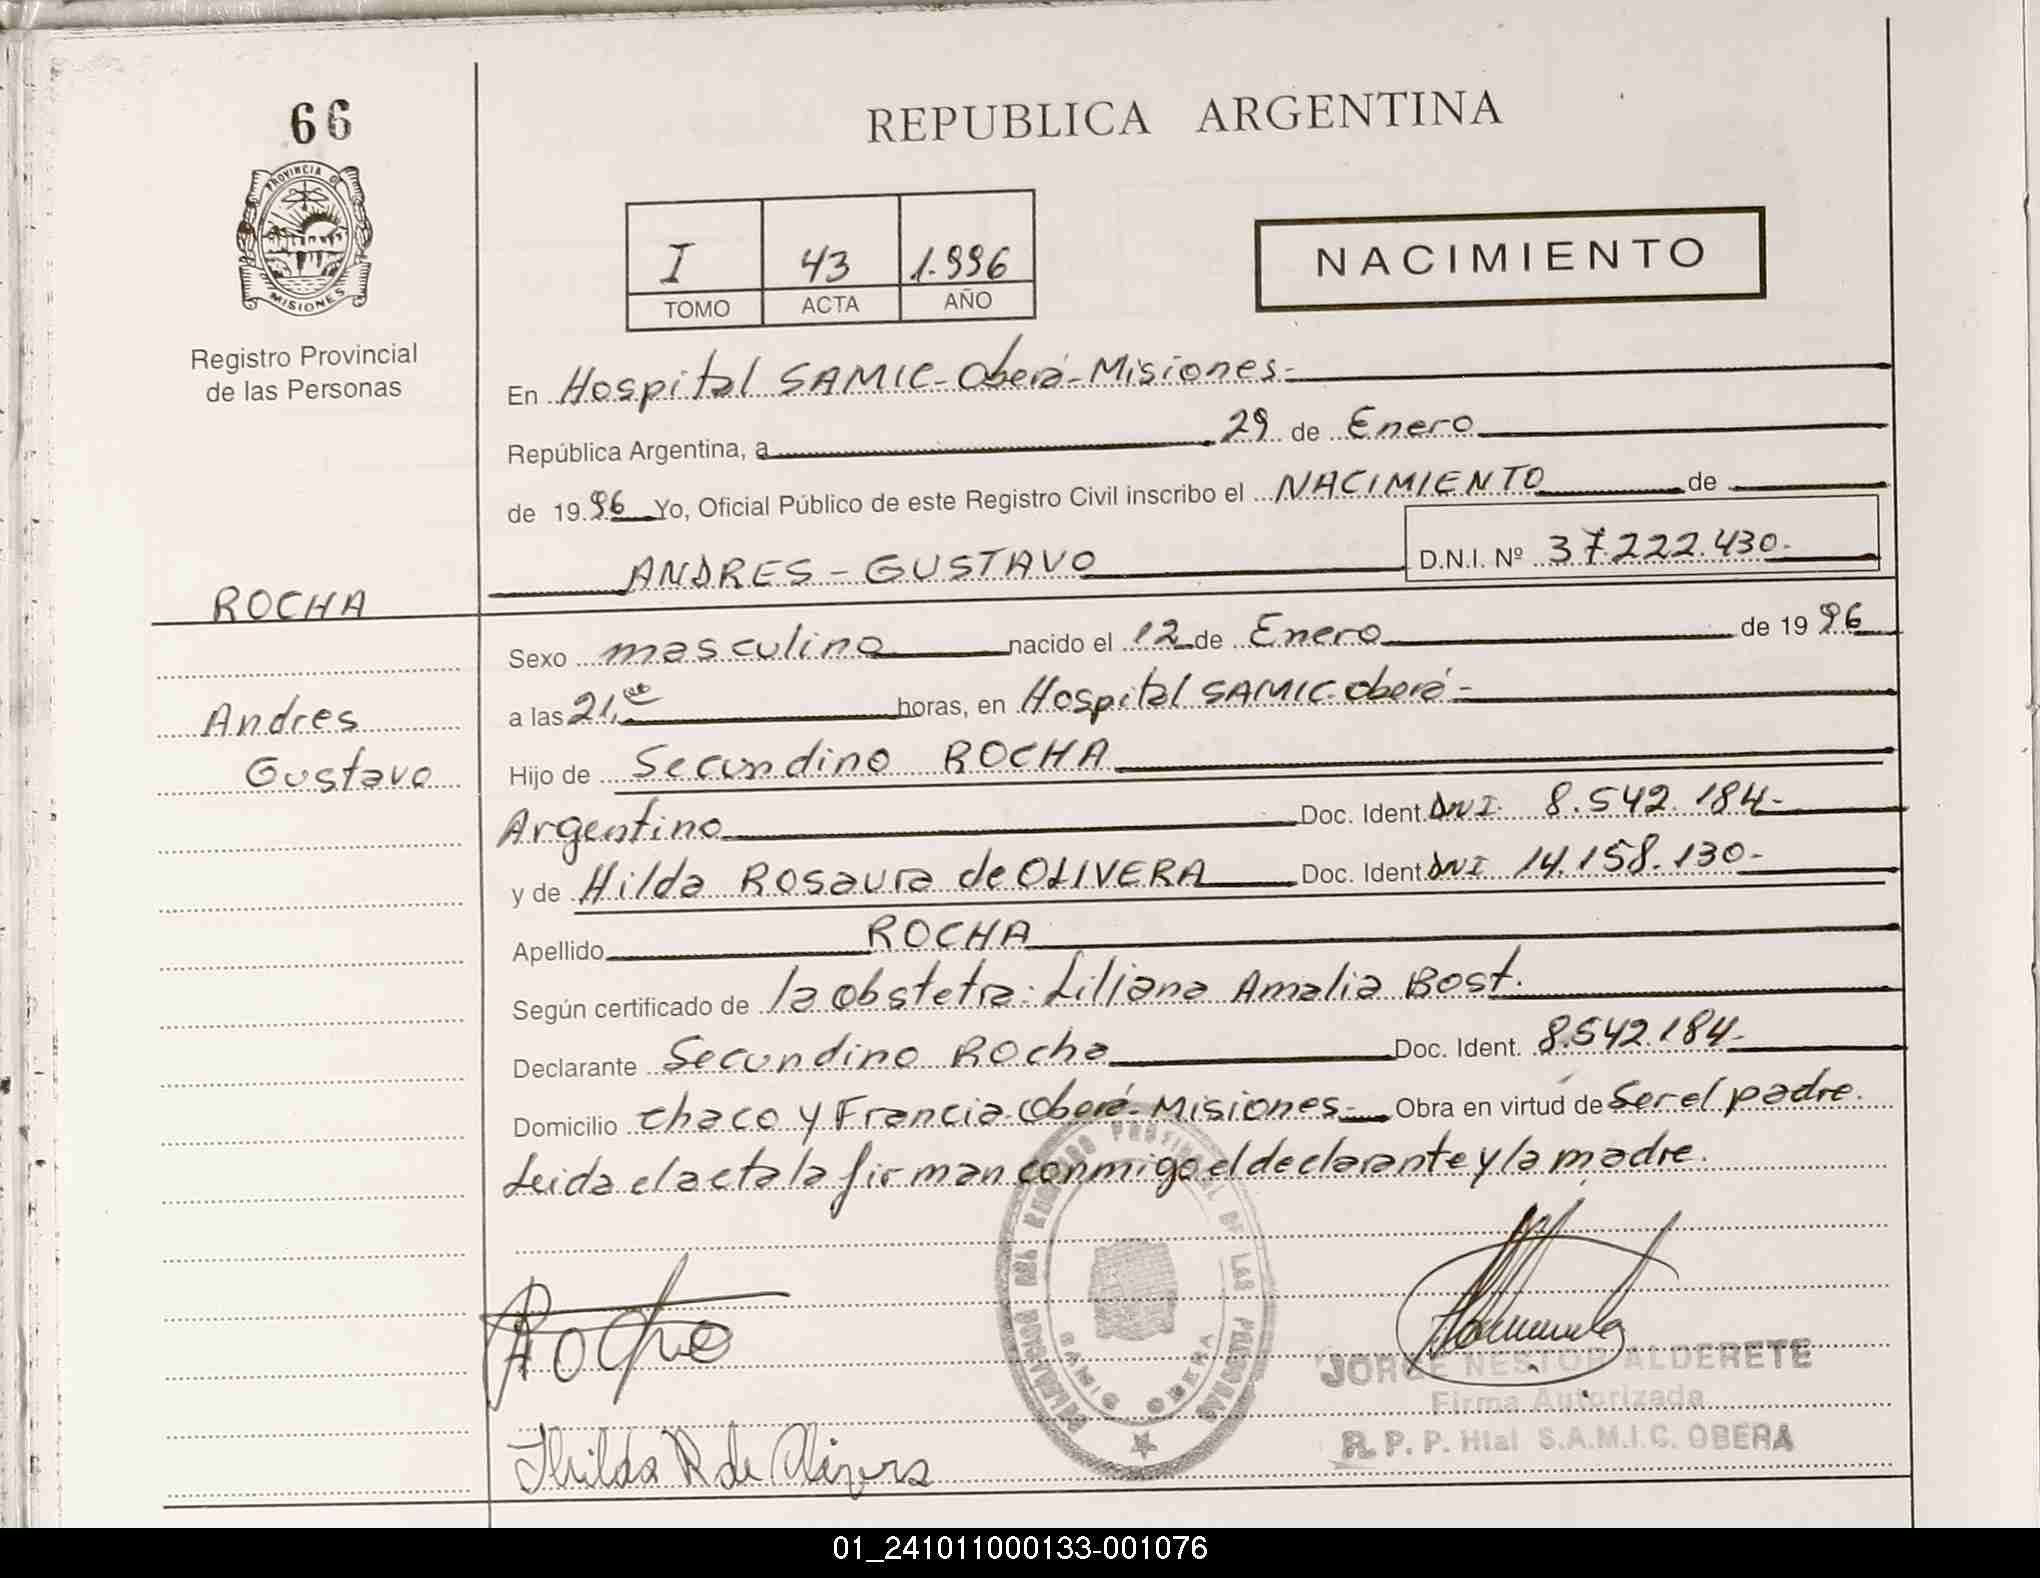 66
PROVINCIA D
MISIONES
Registro Provincial
de las Personas
REPUBLICA ARGENTINA
I 43 1.996
TOMO ACTA AÑO
NACIMIENTO
En Hospital SAMIC-Oberá-Misiones-
República Argentina, a 29 de Enero
de 1996 Yo, Oficial Público de este Registro Civil inscribo el NACIMIENTO de
ANDRES - GUSTAVO D.N.I. Nº 37.222.430-
ROCHA
Andres
Gustavo
Sexo masculino nacido el 12 de Enero de 1996
a las 21,00 horas, en Hospital SAMIC-Oberá-
Hijo de Secundino ROCHA
Argentino Doc. Ident. DNI. 8.542.184-
y de Hilda Rosaura de OLIVERA Doc. Ident DNI 14.158.130-
Apellido ROCHA
Según certificado de la obstetra: Liliana Amalia Bost.
Declarante Secundino Rocha Doc. Ident. 8.542.184-
Domicilio Chaco y Francia-Oberá-Misiones- Obra en virtud de Ser el padre.
Leida el acta la firman conmigo el declarante y la madre.
DEL REGISTRO PROVINCIAL DE LAS PERSONAS
SAMIC OBERA
Rocha
JORGE NESTOR ALDERETE
Firma Autorizada
R. P. P. Htal S.A.M.I.C. OBERA
Hilda R de Olivera
01_241011000133-001076